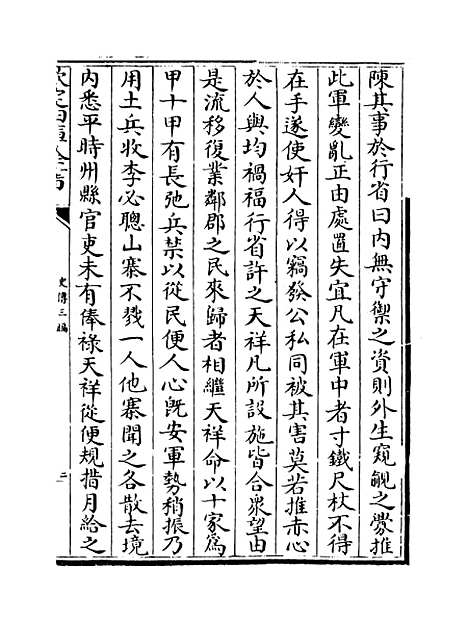 陳其事於行省曰内無守禦之資則外生窺覦之釁推
此軍變亂正由處置失宜凡在軍中者寸鐵尺杖不得
在手遂使奸人得以竊發公私同被其害莫若推赤心
於人與均禍福行省許之天祥凡所設施皆合衆望由
是流移復業鄰郡之民來歸者相繼天祥命以十家為
甲十甲有長弛兵禁以從民便人心既安軍勢稍振乃
用土兵收李必聰山寨不戮一人他寨聞之各散去境
内悉平時州縣官吏未有俸禄天祥從便規措月給之
欽定四庫全書
史傳三編
二